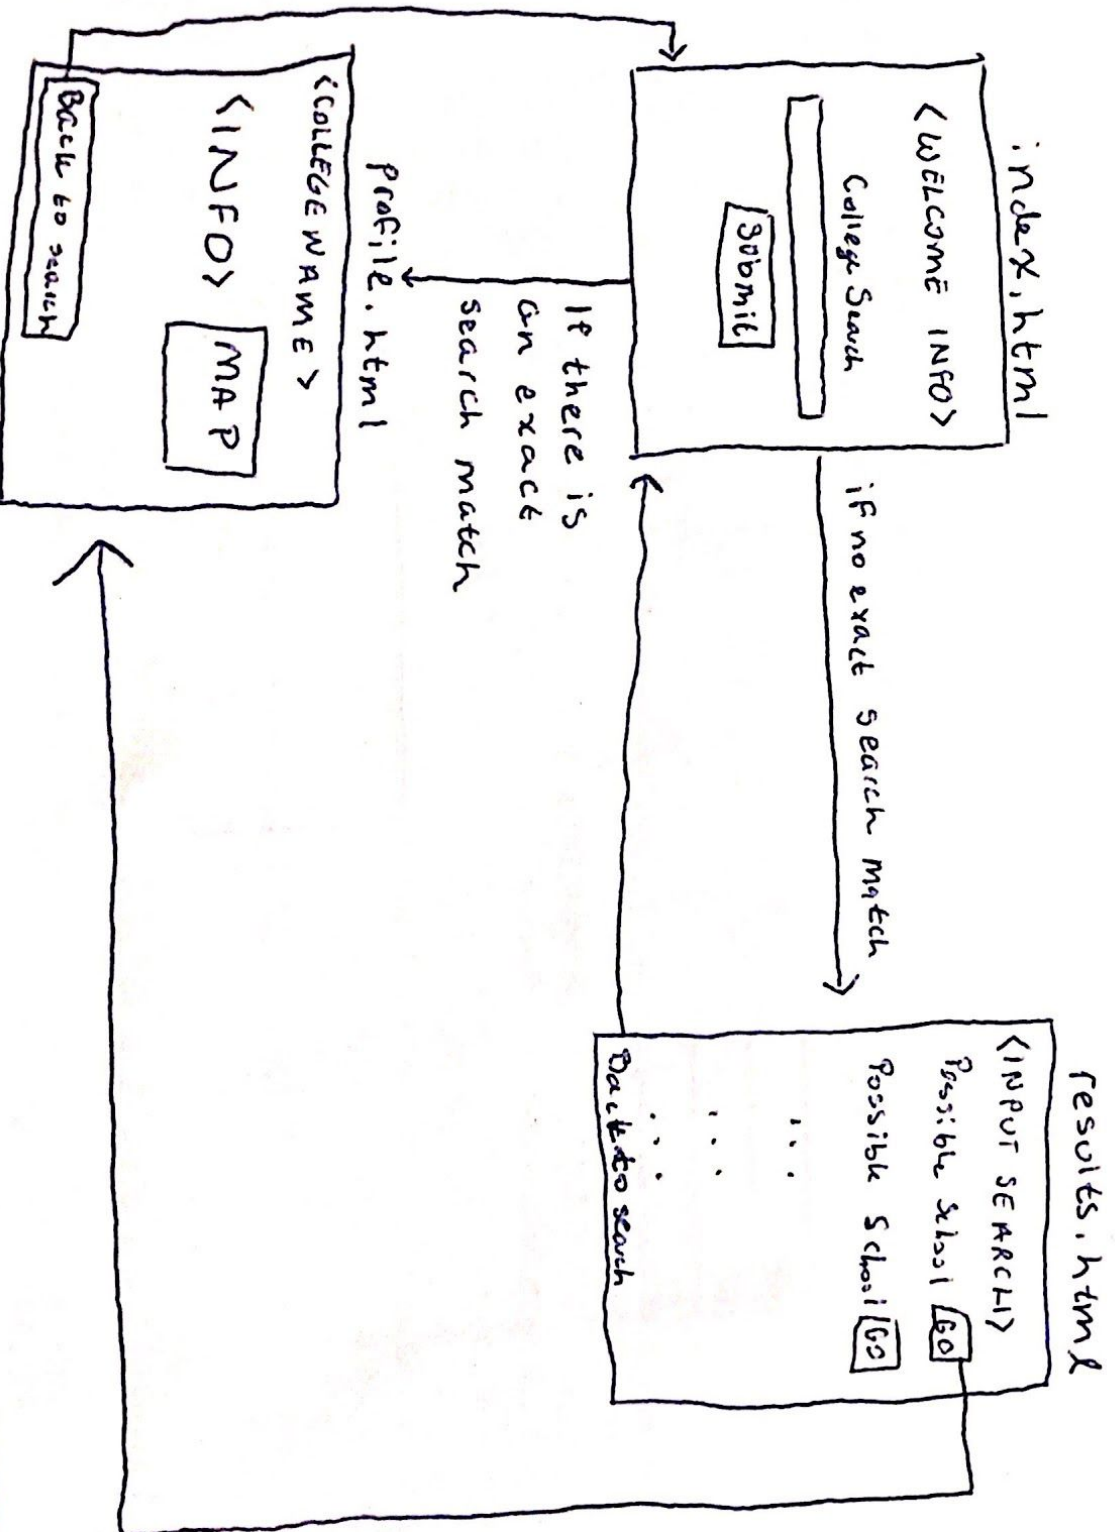 index.html
<WELCOME INFO>
College Search
Submit
if no exact search match
results.html
<INPUT SEARCH>
Possible School GO
Possible School GO
Back to search
If there is
an exact
search match
profile.html
<COLLEGE NAME>
<INFO>
MAP
Back to search